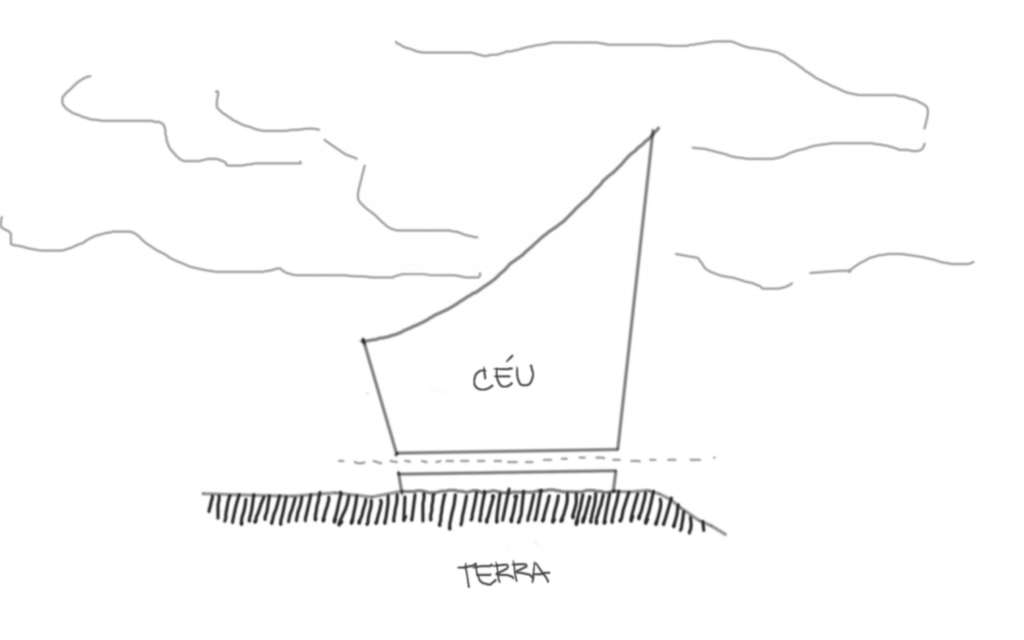 CÉU
TERRA